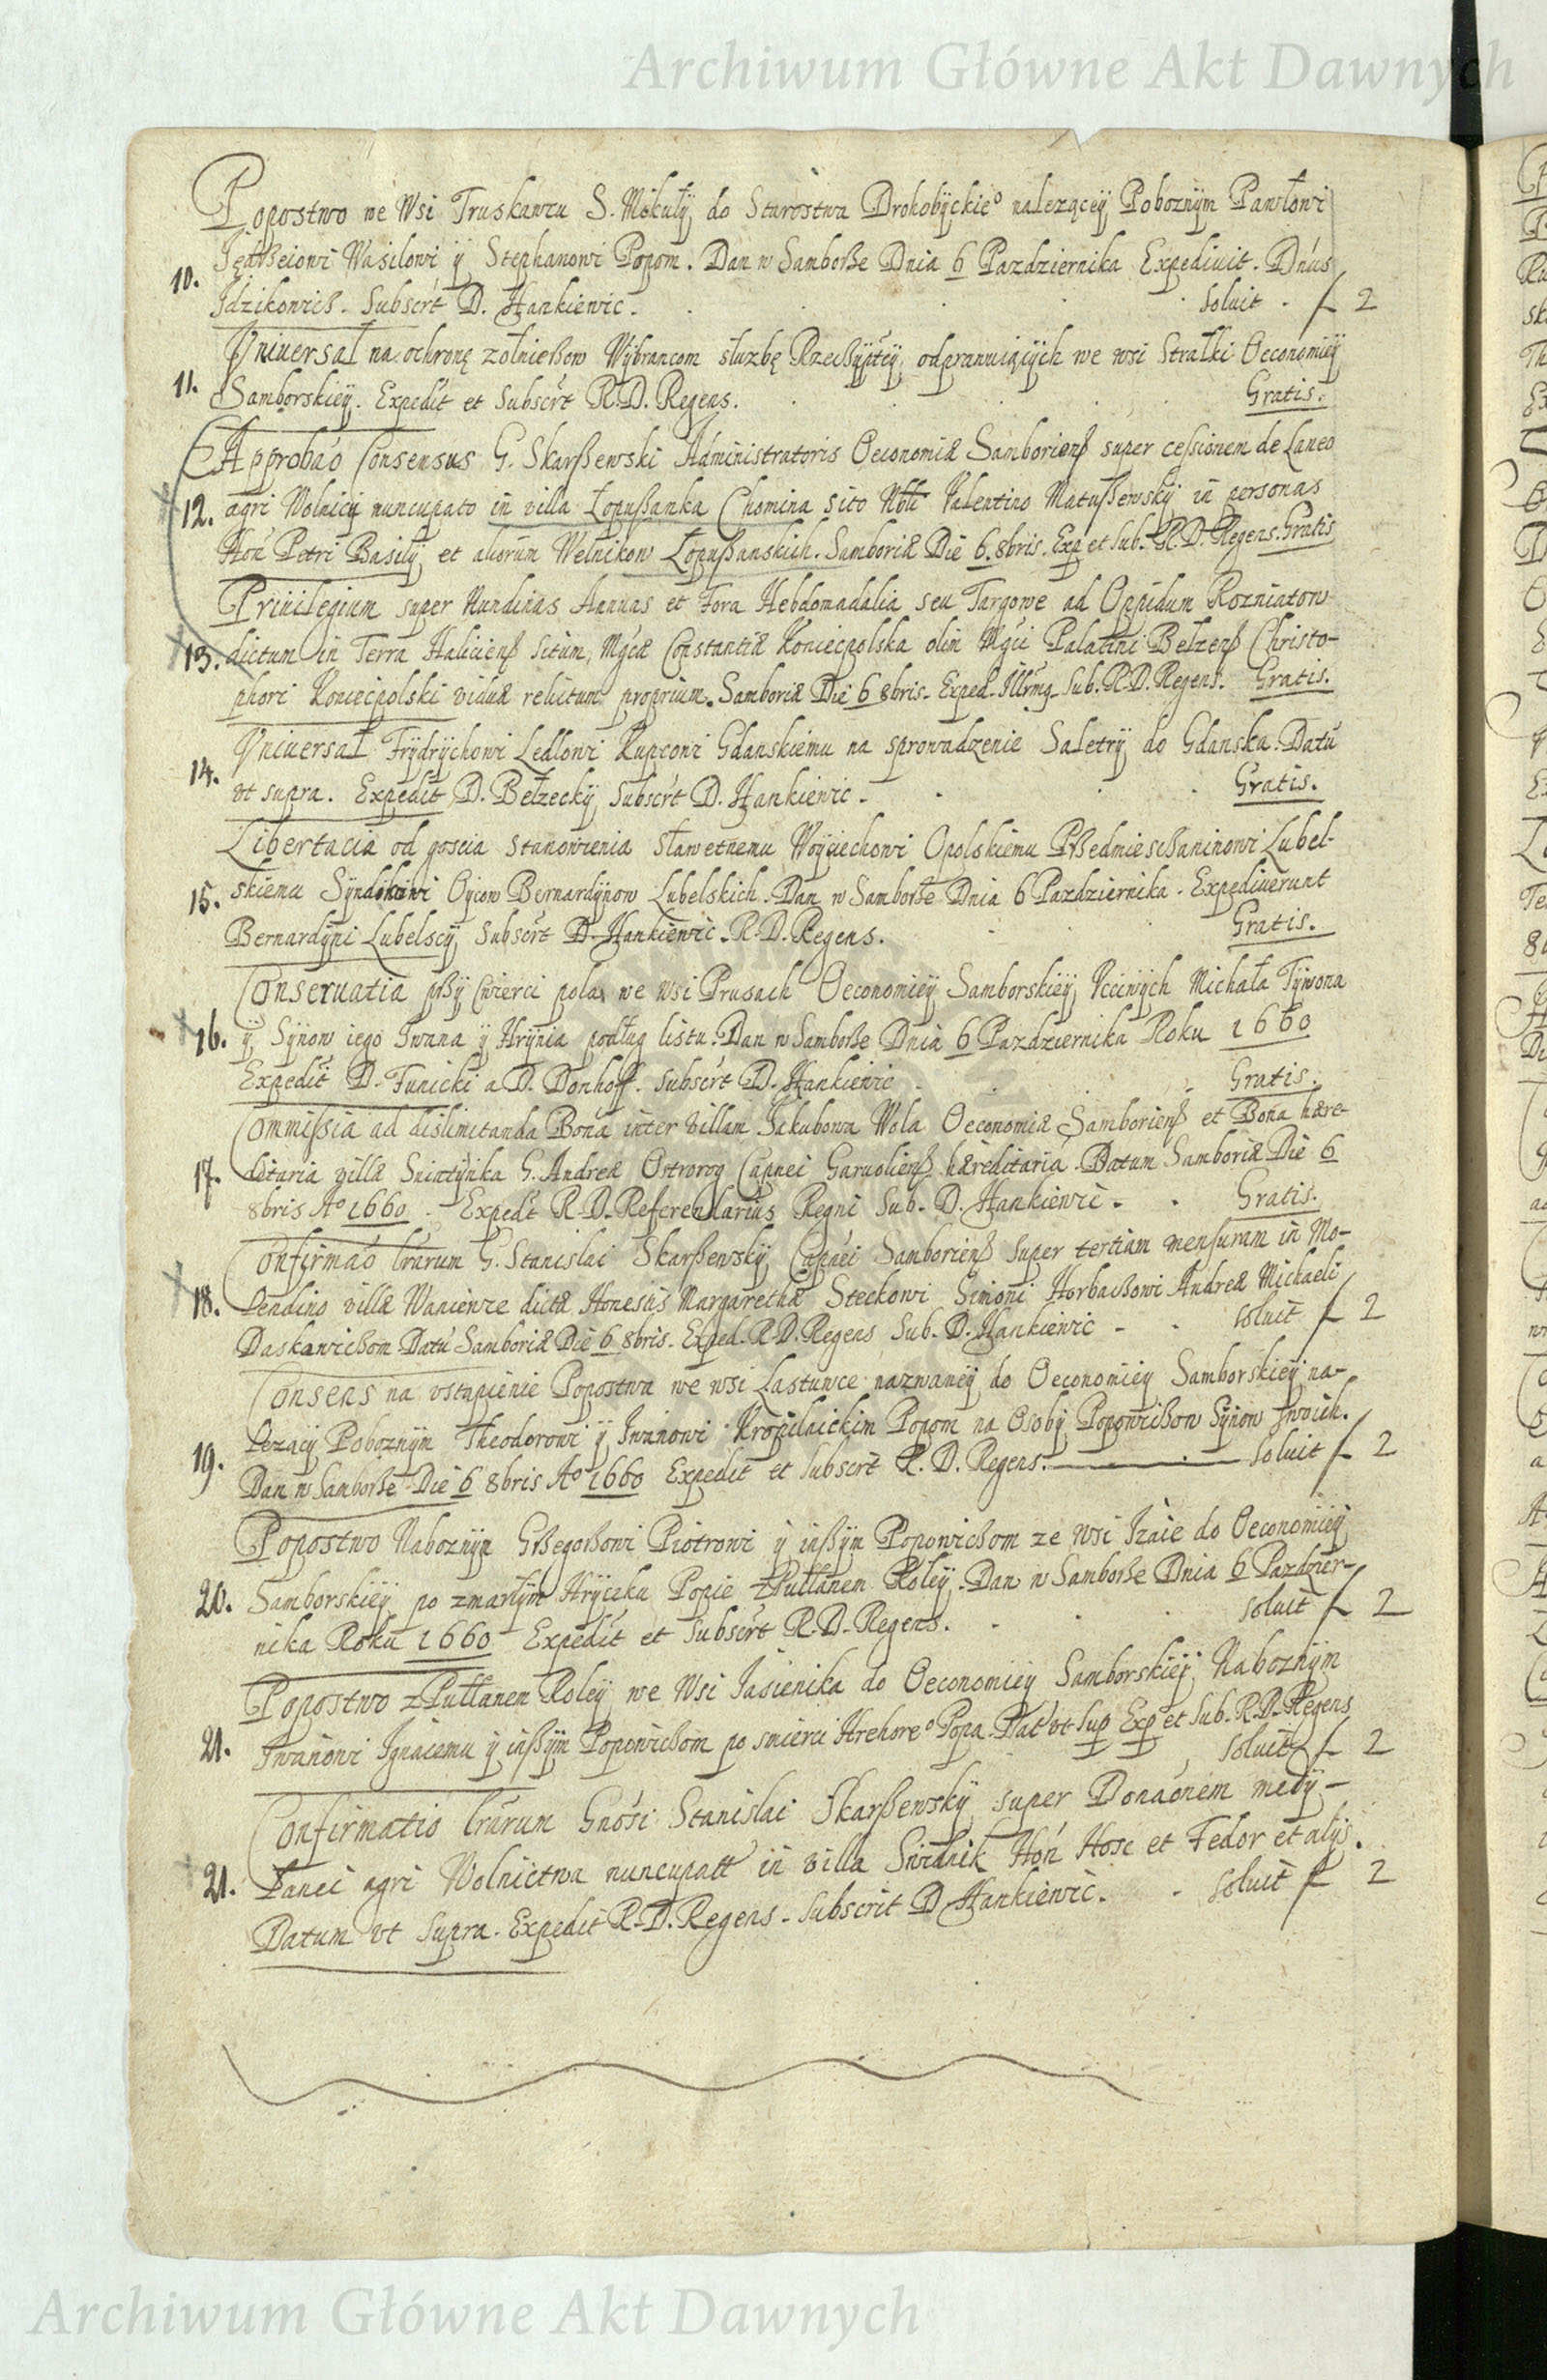 Archiwum Główne Akt Dawnych
Popostwo we Wsi Truskawcu S. Mikuły do Starostwa Drohobyckieº nalezącey Poboznym Pawłowi
Jędrzeiowi Wasilowi y Stephanowi Popom. Dan w Samborze Dnia 6 Pazdziernika Expediuit. Dnus
10.
Idzikowicz. Subscrt D. Hankiewic. Soluit. f 2
Vniuersał na ochronę zołnierzow Wybrancom słuzbę Rzeczyptey odprawuiących we wsi Strałki Oeconomiey
11.
Samborskiey. Expedit et Subscrt R. D. Regens. Gratis.
Approbao Consensus G. Skarszewski Administratoris Oeconomiæ Samboriens super cessionem de Laneo
12. agri Wolnicy nuncupato in villa Łopuszanka Chomina sito Nbli Valentino Matuszewsky in personas
Hon Petri Basily et aliorum Welnikow Łopuszanskich. Samboriæ Die 6. 8bris. Exp et Sub. R. D. Regens. Gratis
Priuilegium super Nundinas Annuas et Fora Hebdomadalia seu Targowe ad Oppidum Rozniatow
13. dictum in Terra Haliciens situm, Mgcæ Constantiæ Koniecpolska olim Mgci Palatini Bełzens Christo-
phori Koniecpolski viduæ relictum proprium. Samboriæ Die 6 8bris. Exped. Illrmg. Sub. R. D. Regens. Gratis.
Vniuersał Frydrychowi Ledlowi Kupcowi Gdanskiemu na sprowadzenie Saletry do Gdanska. Datu
14.
vt supra. Expedit D. Bełzecky Subscrt D. Hankiewic. Gratis.
Libertacia od goscia stanowienia sławetnemu Woyciechowi Opolskiemu Przedmiesczaninowi Lubel-
15. skiemu Syndikowi Oycow Bernardynow Lubelskich. Dan w Samborze Dnia 6 Pazdziernika. Expediuerunt
Bernardyni Lubelscy Subscrt D. Hankiewic. R. D. Regens. Gratis.
Conseruatia przy Cwierci pola we wsi Prusach Oeconomiey Samborskiey Vcciwych Michała Tywona
16. y Synow iego Iwana y Hrynia podług listu. Dan w Samborze Dnia 6 Pazdziernika Roku 1660
Expedit D. Funicki a D. Donhoff. Subscrt D. Hankiewic. Gratis.
Commissia ad dislimitanda Bona inter villam Jakubowa Wola Oeconomiæ Samboriens et Bona hære-
17. ditaria villæ Sniatynka G. Andreæ Ostrorog Capnei Garuoliens hæreditaria. Datum Samboriæ Die 6
8bris Aº 1660. Expedt R. D. Referendarius Regni Sub. D. Hankiewic. Gratis.
Confirmao lrarum G. Stanislai Skarszewsky Capnei Samboriens super tertiam mensuram in Mo-
18. lendino villæ Waniewce dictæ Honestis Margarethæ Steckowi Simoni Horbaczowi Andreæ Michaeli
Daskawiczom Datu Samboriæ Die 6 8bris. Exped. R. D. Regens Sub. D. Hankiewic. soluit f 2
Consens na vstąpienie Popostwa we wsi Lastuwce nazwaney do Oeconomiey Samborskiey na-
lezący Poboznym Theodorowi y Iwanowi Kropilnickim Popom na Osoby Popowiczow Synow swoich.
19.
Dan w Samborze Die 6 8bris Aº 1660 Expedit et subscrt R. D. Regens. soluit f 2
Popostwo Naboznym Grzegorzowi Piotrowi y inszym Popowiczom ze wsi Izaie do Oeconomiey
20. Samborskiey po zmarłym Hrycku Popie z Pułłanem Roley. Dan w Samborze Dnia 6 Pazdzier-
nika Roku 1660 Expedit et subscrt R. D. Regens. soluit f 2
Popostwo z Pułłanem Roley we Wsi Jasienika do Oeconomiey Samborskiey Naboznym
21. Iwanowi Ignacemu y inszym Popowiczom po smierci Hrehoreº Popa. Dat vt Sup Exp et Sub. R. D. Regens
soluit f 2
Confirmatio lrarum Gnosi Stanislai Skarszewsky super Donaonem medy-
21. Lanei agri Wolnictwa nuncupatt in villa Swidnik Hon Hosc et Fedor et alys.
Datum vt supra. Expedit R. D. Regens. Subscrit D Hankiewic. soluit f 2
Archiwum Główne Akt Dawnych